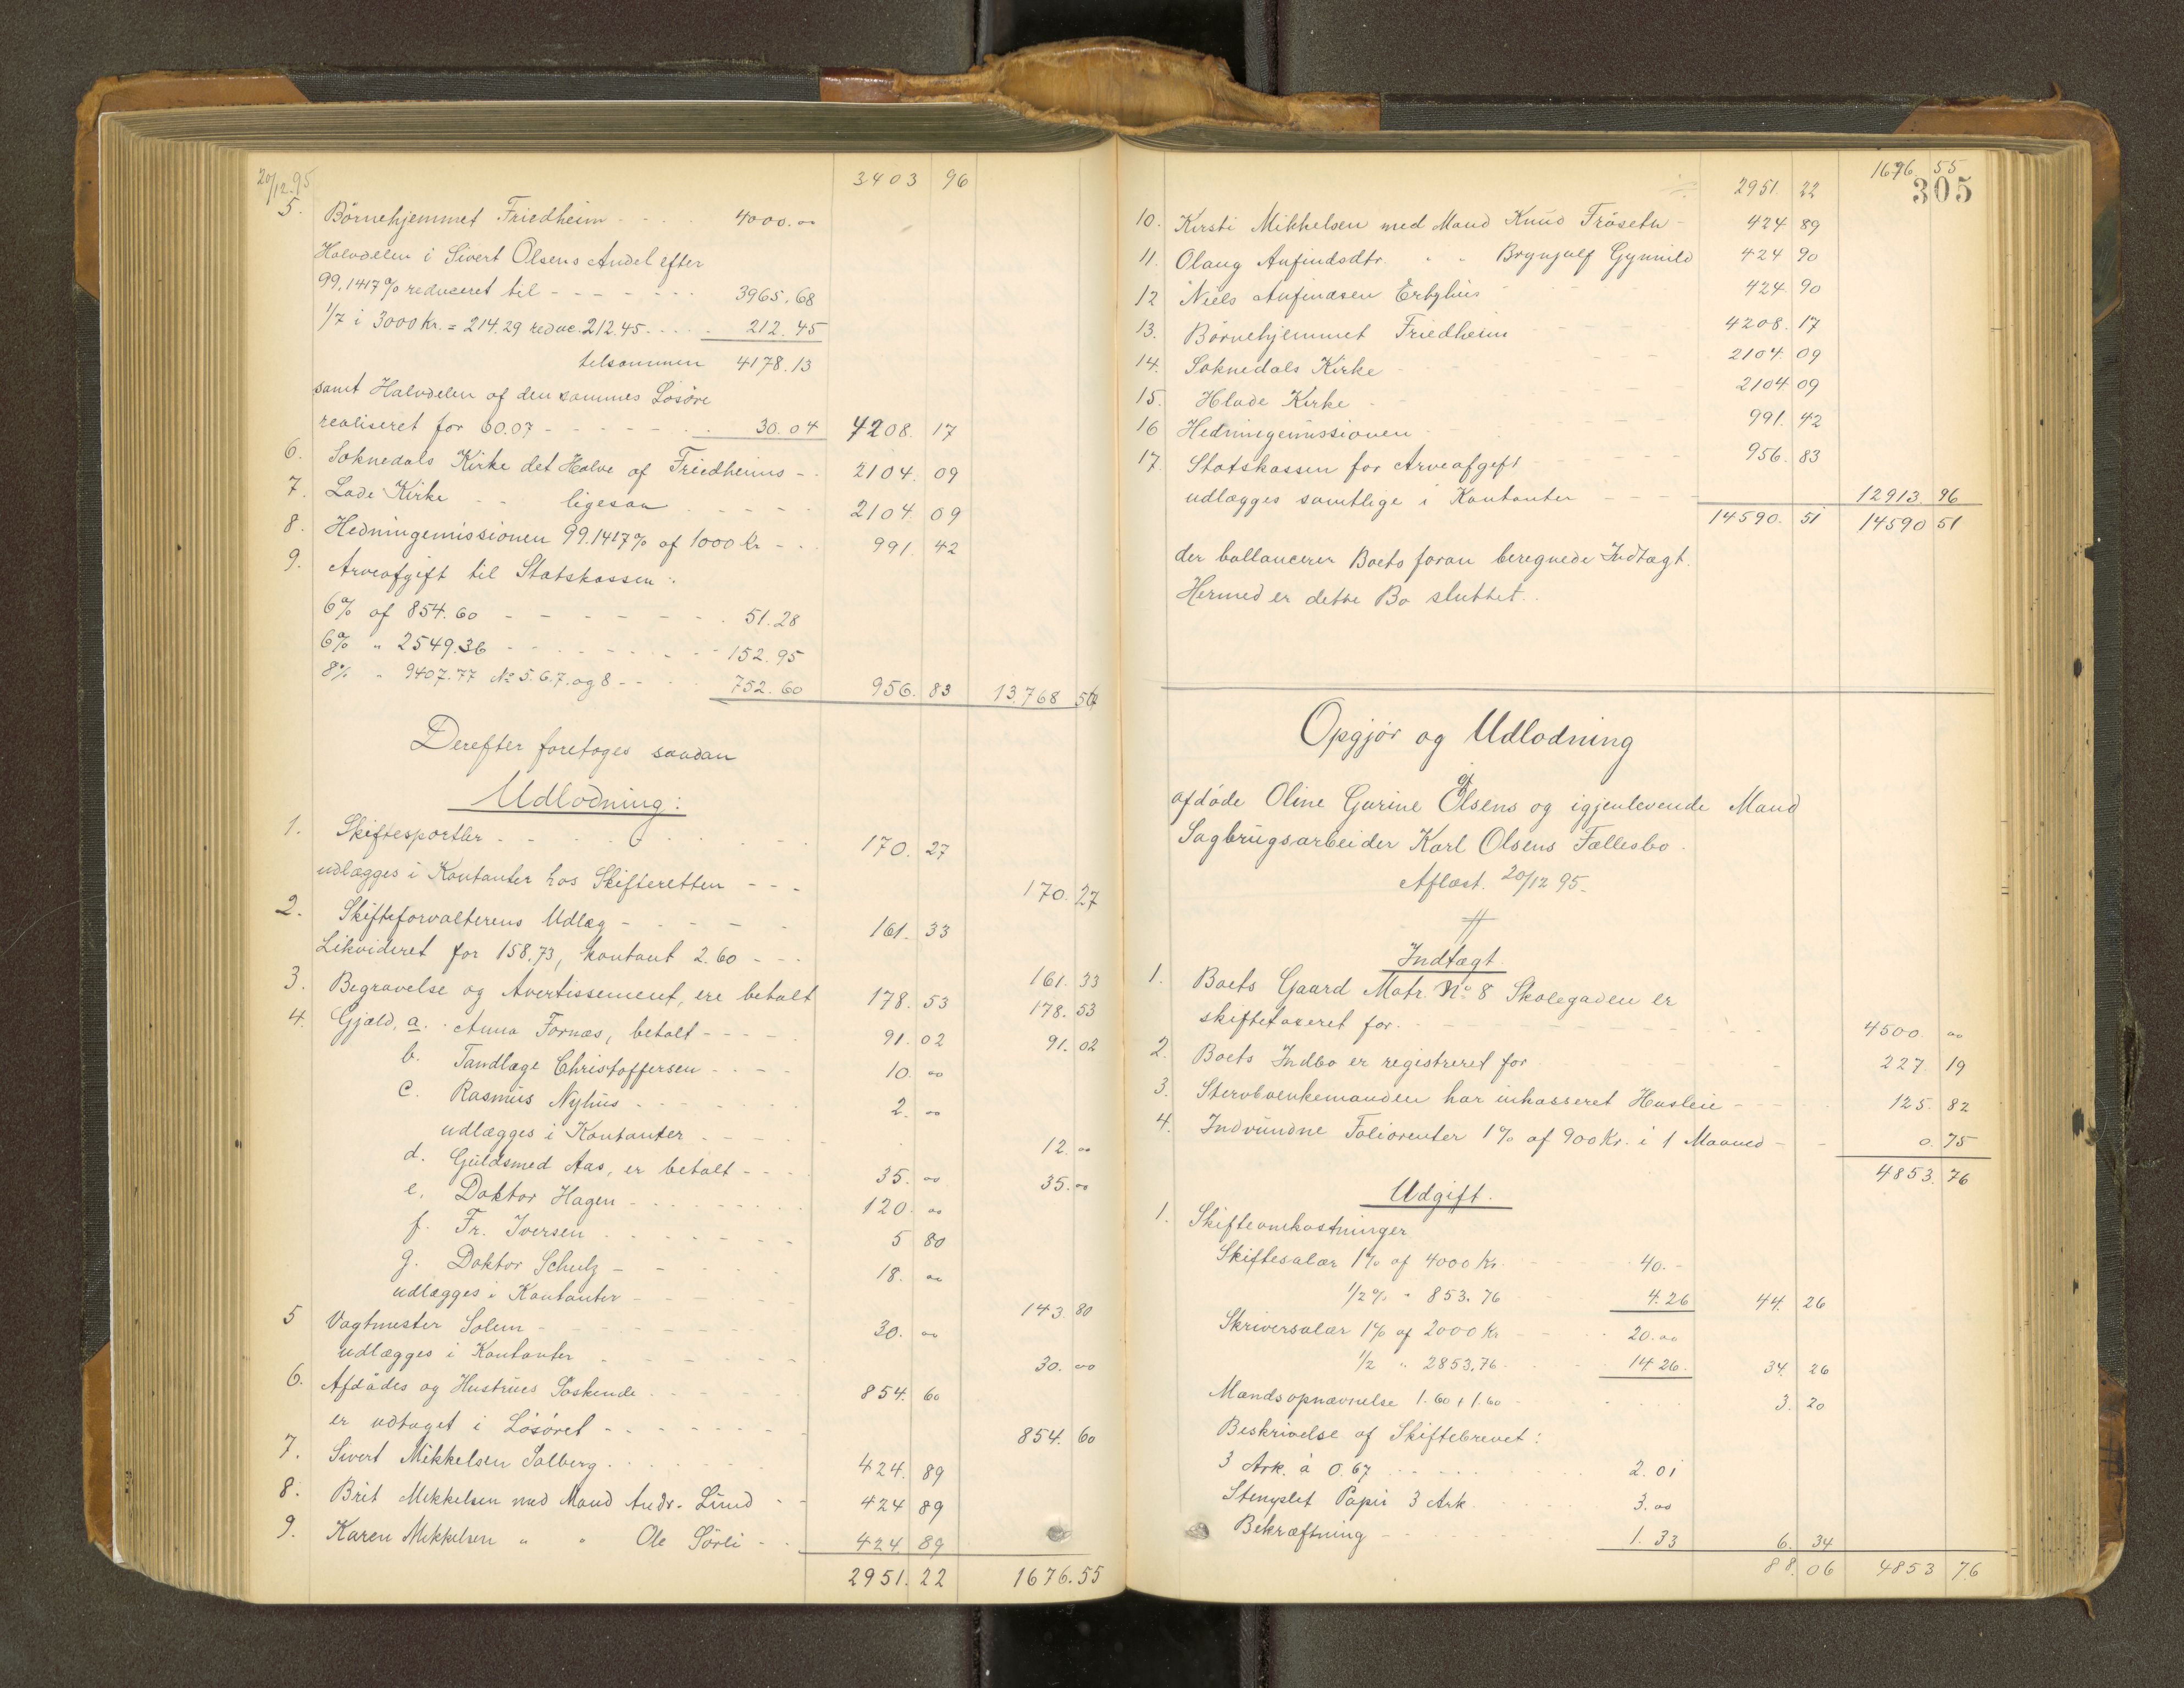 20/12.95
3403 96
5. Börnehjemmet Friedheim - - - 4000.00
Halvdelen i Sivert Olsens Andel efter
99,1417% reduceret til - - - - - - 3965.68
1/7 i 3000 Kr. = 214.29 reduc. 212.45 - - - 212.45
tilsammen 4178.13
samt Halvdelen af den sammes Lösöre
realiseret for 60.07 - - - - - - 30.04 4208. 17
6. Soknedals Kirke det Halve af Friedheims - - 2104. 09
7. Lade Kirke - - ligesaa - - - - 2104. 09
8. Hedningemissionen 99.1417% af 1000 kr - - - 991. 42
9. Arveafgift til Statskassen:
6% af 854.60 - - - - - - - 51.28
6% " 2549.36 - - - - - - - 152.95
8% " 9407.77 No 5.6.7. og 8 - - - 752.60 956. 83 13.768 56
Derefter foretages saadan
Udlodning:
1. Skiftesportler - - - - - - - 170. 27
udlægges i Kontanter hos Skifteretten - - - 170. 27
2. Skifteforvalterens Udlæg - - - - - 161. 33
Likvideret for 158.73, kontant 2.60 - - - 161. 33
3. Begravelse og Avertissement, ere betalt 178. 53 178. 53
4. Gjæld, a. Anna Fornæs, betalt - - - - 91. 02 91. 02
b. Tandlæge Christoffersen - - - - 10. 00
c. Rasmus Nyhus - - - - - - 2. 00
udlægges i Kontanter - - - - - 12. 00
d. Guldsmed Aas, er betalt - - - 35. 00 35. 00
e. Doktor Hagen - - - - - - - 120. 00
f. Fr. Iversen - - - - - - - 5 80
g. Doktor Schulz - - - - - - 18. 00
udlægges i Kontanter - - - - - 143. 80
5 Vagtmester Solem - - - - - - 30. 00
udlægges i Kontanter - - - - - - 30. 00
6. Afdödes og Hustrues Söskende - - - - - 854. 60
er udtaget i Lösöret - - - - - - - 854. 60
7. Sivert Mikkelsen Solberg - - - - - - 424. 89
8. Brit Mikkelsen med Mand Andr. Lund - - 424 89
9. Karen Mikkelsen " " Ole Sörli - - 424. 89
2951. 22 1676. 55
305
2951. 22 1676. 55
10. Kirsti Mikkelsen med Mand Knud Fröseth - 424 89
11. Olaug Anfindsdtr. " " Brynjulf Gynnild 424 90
12 Niels Anfindsen Erbyhus - - - - 424. 90
13. Börnehjemmet Friedheim - - - - 4208. 17
14. Soknedals Kirke - - - - - 2104. 09
15. Hlade Kirke - - - - - - 2104 09
16 Hedningemissionen - - - - - - 991. 42
17. Statskassen for Arveafgift - - - - - 956. 83
udlægges samtlige i Kontanter - - - - 12913. 96
14590. 51 14590 51
der ballancerer Boets foran beregnede Indtægt.
Hermed er dette Bo sluttet.
Opgjör og Udlodning
af
afdöde Oline Gurine Olsens og igjenlevende Mand
Sagbrugsarbeider Karl Olsens Fællesbo.
Aflæst. 20/12 95.
Indtægt.
1. Boets Gaard Matr. No 8 Skolegaden er
skiftetaxeret for - - - - - - - - 4500. 00
2. Boets Indbo er registreret for - - - - - 227. 19
3. Stervboenkemanden har inkasseret Husleie - - - 125. 82
4. Indvundne Foliorenter 1% af 900 Kr. i 1 Maaned - - 0. 75
4853. 76
Udgift.
1. Skifteomkostninger
Skiftesalær 1% af 4000 Kr. - - - 40. -
1/2% " 853.76 - - - 4.26 44. 26
Skriversalær 1% af 2000 Kr - - - 20.00
1/2 " 2853.76 - - - 14.26 34. 26
Mandsopnævnelse 1.60 + 1.60 - - - - 3. 20
Beskrivelse af Skiftebrevet:
3 Ark. à 0.67 - - - - - 2.01
Stemplet Papir 3 Ark. - - - - 3.00
Bekræftning - - - - - - 1.33 6. 34
88. 06 4853 76